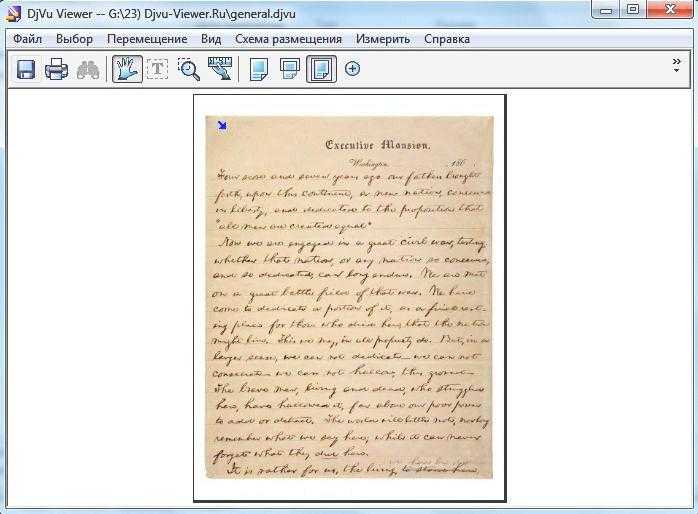 DjVu Viewer -- G:\23) Djvu-Viewer.Ru\general.djvu
Файл Выбор Перемещение Вид Схема размещения Измерить Справка
Executive Mansion.
Washington, 186 .
Four score and seven years ago our fathers brought
forth, upon this continent, a new nation, conceived
in liberty, and dedicated to the proposition that
"all men are created equal"
Now we are engaged in a great civil war, testing
whether that nation, or any nation so conceived,
and so dedicated, can long endure. We are met
on a great battle field of that war. We have
come to dedicate a portion of it, as a final rest-
ing place for those who died here, that the nation
might live. This we may, in all propriety do. But, in a
larger sense, we can not dedicate we can not
consecrate we can not hallow, this ground
The brave men, living and dead, who struggled
here, have hallowed it, far above our poor power
to add or detract. The world will little note, nor long
remember what we say here; while it can never
forget what they did here.
It is rather for us, the living, to stand here,